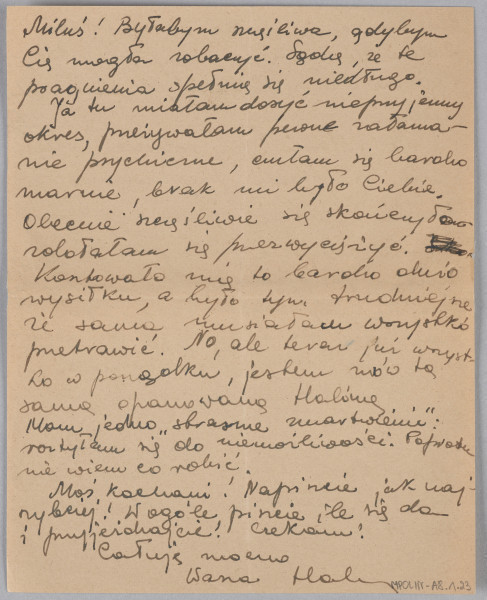 Miluś! Byłabym szczęśliwa, gdybym
Cię mogła zobaczyć. Sądzę, że te
pragnienia spełnią się niedługo.
Ja tu miałam dosyć nieprzyjemny
okres, przeżywałam pewne załama-
nie psychiczne, czułam się bardzo
marnie, brak mi było Ciebie.
Obecnie szczęśliwie się skończyło
zdołałam się przezwyciężyć.
Kosztowało mię to bardzo dużo
wysiłku, a było tym trudniejsze
że sama musiałam wszystko
przetrawić. No, ale teraz już wszyst-
ko w porządku, jestem znów tą
samą opanowaną Haliną
Mam jedno „straszne zmartwienie":
roztyłam się do niemożliwości. Poprostu
nie wiem co robić.
Moi kochani! Napiszcie jak naj-
szybciej! Wogóle piszcie, ile się da
i przyjeżdżajcie! Czekam!
Całuję mocno
Wasza Hal
MPOLIN-A8.1.23